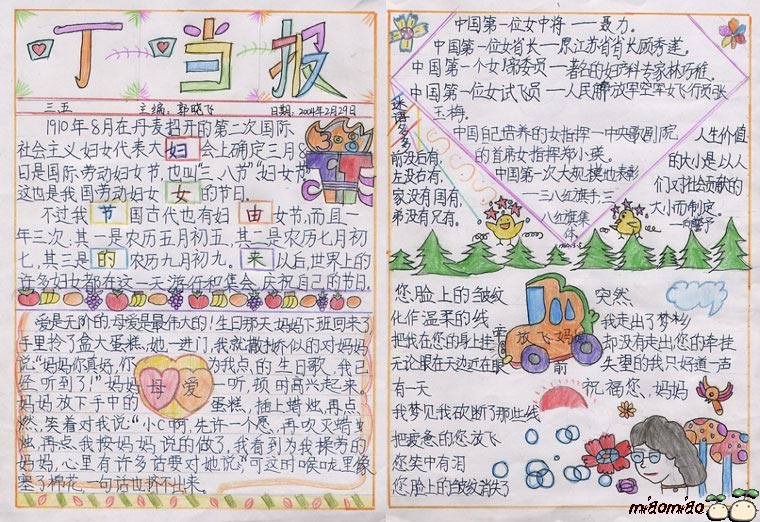 叮当报
三五 主编:郭晓飞 日期:2004年2月29日
1910年8月在丹麦招开的第二次国际
社会主义妇女代表大 妇 会上确定三月8
日是国际劳动妇女节,也叫“三八节”“妇女节”
这也是我国劳动妇女 女 的节日.
不过我 节 国古代也有妇 由 女节,而且一
年三次:其一是农历五月初五,其二是农历七月初
七,其三是 的 农历九月初九。 来 以后,世界上的
许多妇女都在这一天游行和集会,庆祝自己的节日.
爱是无价的,母爱是最伟大的!生日那天,妈妈下班回来了,
手里拎了盒大蛋糕,她一进门,我就撒娇似的对妈妈
说:“妈妈你真好,你 为我点的,生日歌,我已
经听到了!”妈妈 母爱 一听,顿时高兴起来。
妈妈放下手中的 蛋糕,插上蜡烛,再点
燃,笑着对我说:“小C啊,先许一个愿,再吹灭蜡
烛,再点我按妈妈说的做了,我看到为我操劳的
妈妈,心里有许多话要对她说,可这时喉咙里像
塞了棉花,一句话也挤不出来。
中国第一位女中将——聂力。
中国第一位女省长——原江苏省省长顾秀莲。
中国第一个女 委员——著名的妇产科专家林巧稚。
中国第一位女试飞员——人民解放军空军女飞行员张
玉梅。
中国自己培养的女指挥—中央歌剧院
的首席女指挥郑小英。
中国第一次大规模地表彰
—三八红旗手,三
八红旗集
体
迷语多多
前没后有,
左没右有,
家没有国有,
弟没有兄有。
人生价值
的大小是以人
们对社会贡献的
大小而制定。
—向警予
放飞妈妈
您脸上的皱纹
化作温柔的线
把我在您的身上挂牵
无论眼在天边近在眼前
有一天
我梦见我砍断了那些线
把疲惫的您放飞
您笑中有泪
您脸上的皱纹消失了
突然,
我走出了梦杉
却没有走出您的牵挂
失望的我只好道一声
祝福您,妈妈
miaomiao